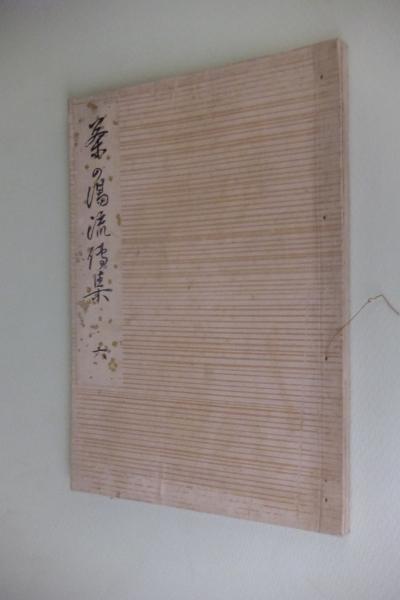 茶の湯流傳集 六